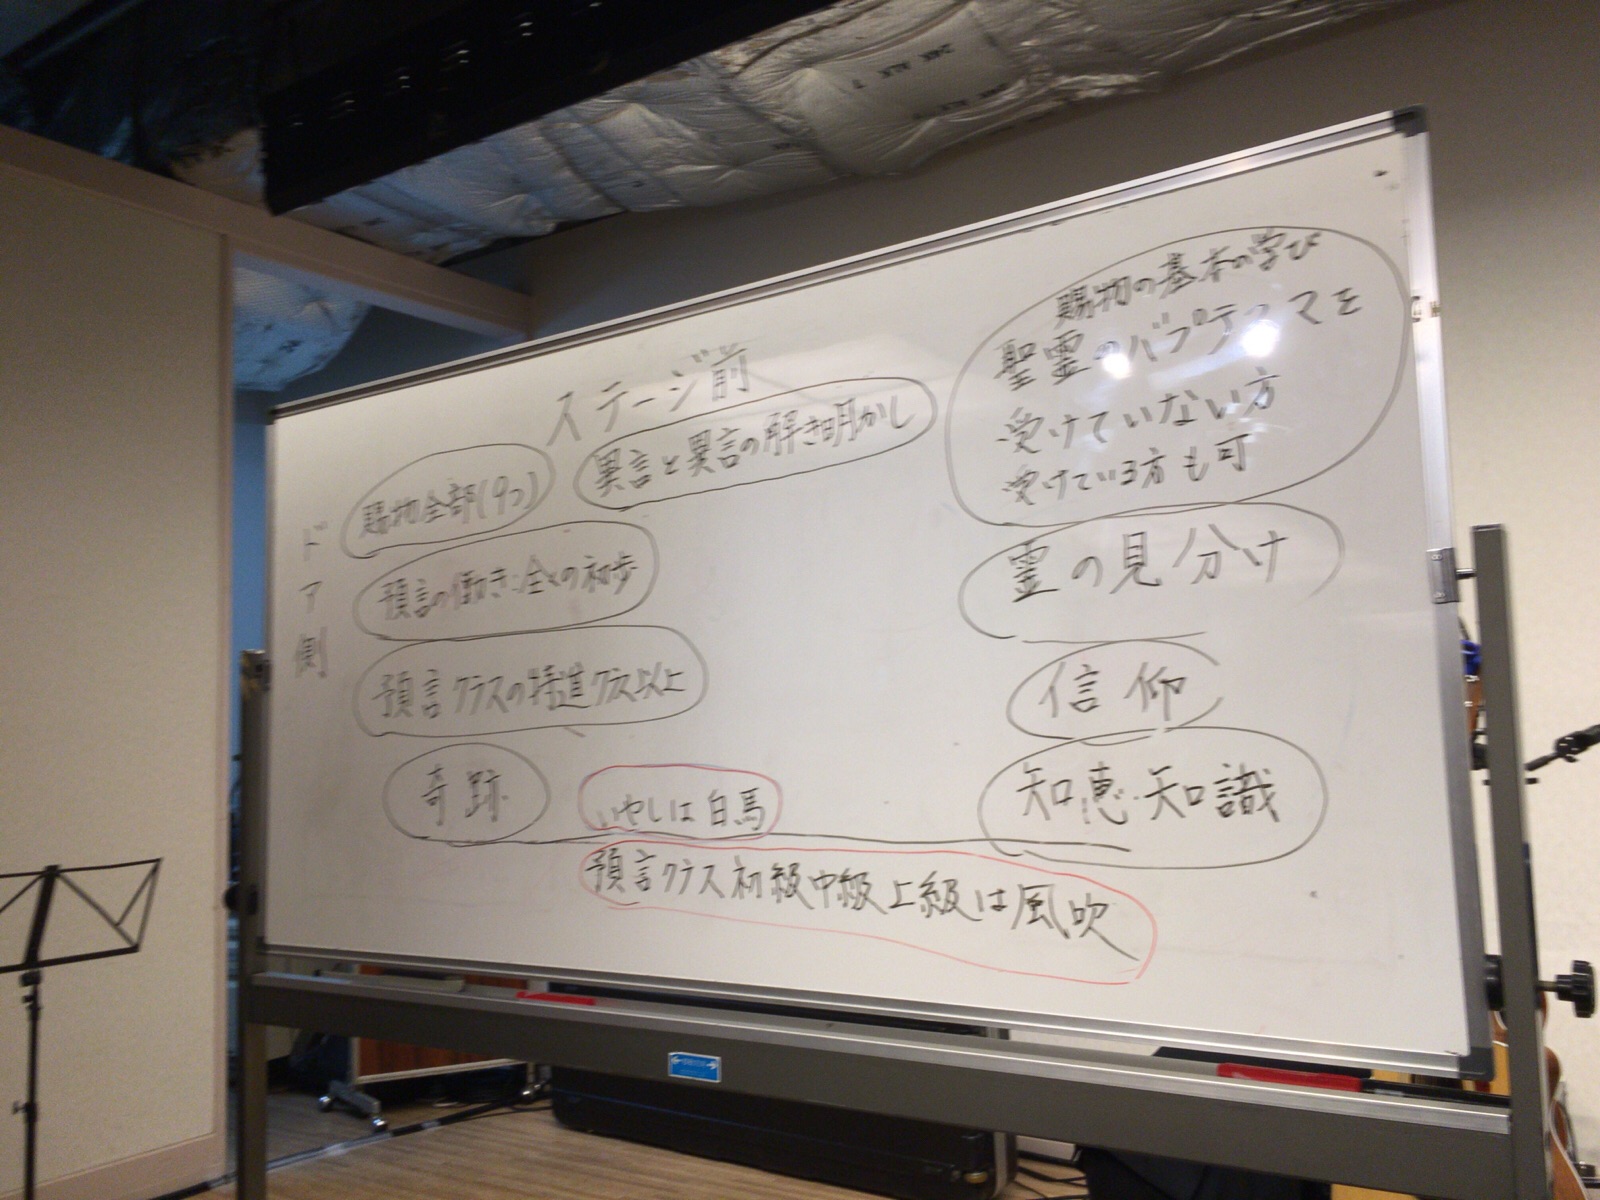 ステージ前
賜物の基本の学び
聖霊のバプテスマを
受けていない方
受けている方も可
異言と異言の解き明かし
賜物全部(9つ)
ドア側
預言の働き:全くの初歩
霊の見分け
預言クラスの特進クラス以上
信仰
奇跡
いやしは白馬
知恵・知識
預言クラス初級中級上級は風吹